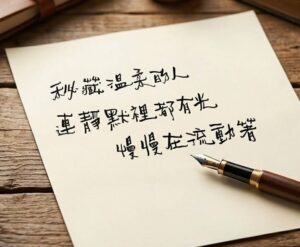 秘藏溫柔的人
連靜默裡都有光
慢慢在流動著